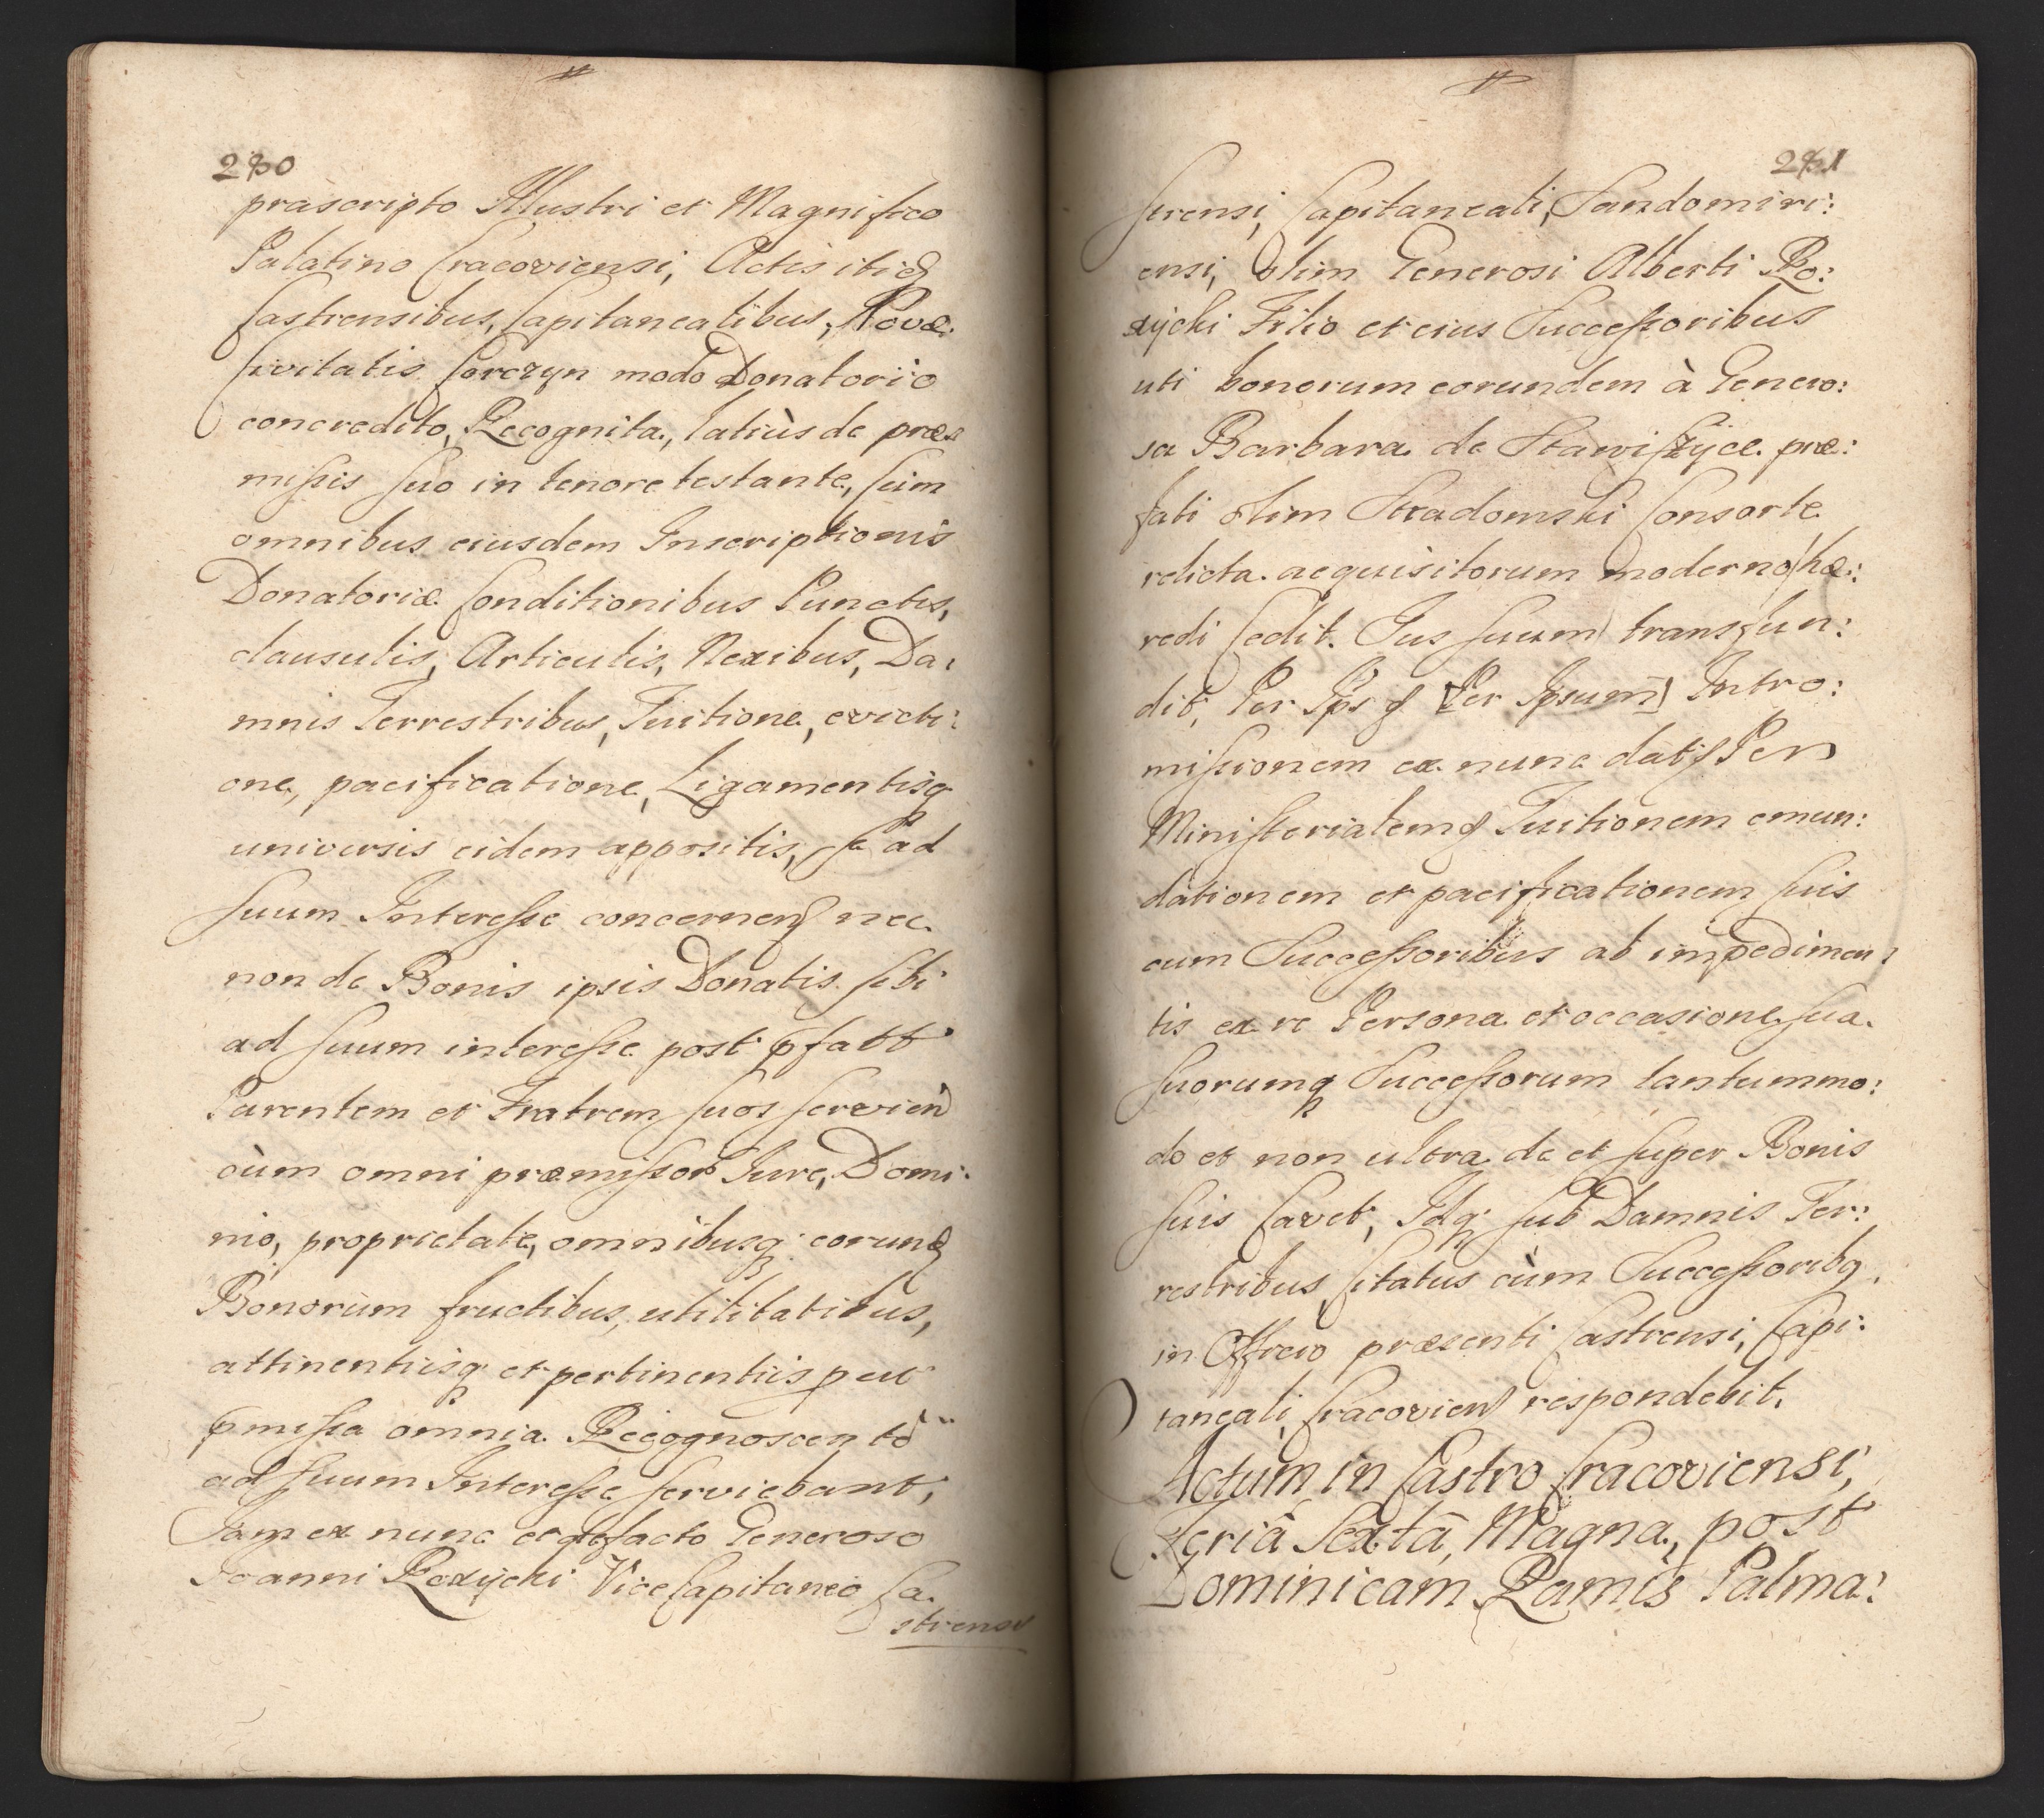 280
præscripto Illustri et Magnifico
Palatino Cracoviensi, Actis itiḋ
Castrensibus, Capitanealibus, Novæ
Civitatis Corczyn modo Donatorio
concredito, Recognita, latiùs de præ:
missis suo in tenore testante, Cum
omnibus eiusdem Inscriptionis
Donatoriæ Conditionibus Punctis,
clausulis, Articulis, Nexibus, Da:
mnis Terrestribus, Tuitione, evicti:
one, pacificatione, Ligamentisq
universis eidem appositis, se ad
suum Interesse concernen nec
non de Bonis ipsis Donatis sibi
ad suum interesse post pfatt
Parentem et Fratrem suos servien
cùm omni præmissor Jure, Domi:
nio, proprietate, omnibusq corund
Bonorum fructibus, utilitatibus,
attinentiisq et pertinentiis put
pmissa omnia Recognoscen tō
ad suum Interesse serviebant,
Jam ex nunc et defacto Generoso
Joanni Roxycki ViceCapitaneo Ca
strensi
281
strensi, Capitaneali, Sandomiri:
ensi, olim Generosi Alberti Ro:
xycki Filio et eius Successoribus
uti bonorum eorundem à Genero:
sa Barbara de Stawiszyce præ:
fati olim Stradomski Consorte
relicta acquisitorum moderno hæ:
redi Cedit. Jus suum transfun:
dit, Per Ips q [Per Ipsum] Intro:
missionem ex nunc dat Per
Ministerialemq Tuitionem emun:
dationem et pacificationem suis
cum Successoribus ab impedimen:
tis ex re Persona et occasione sua
suorumq Successorum tantummo:
do et non ultra de et super Bonis
suis Cavet, Idq sub Damnis Ter:
restribus Citatus cùm Successoribq
in Officio præsenti Castrensi, Capi:
taneali, Cracovien respondebit.
Actum in Castro Cracoviensi,
Feriâ Sextâ, Magna, post
Dominicam Ramis Palma: